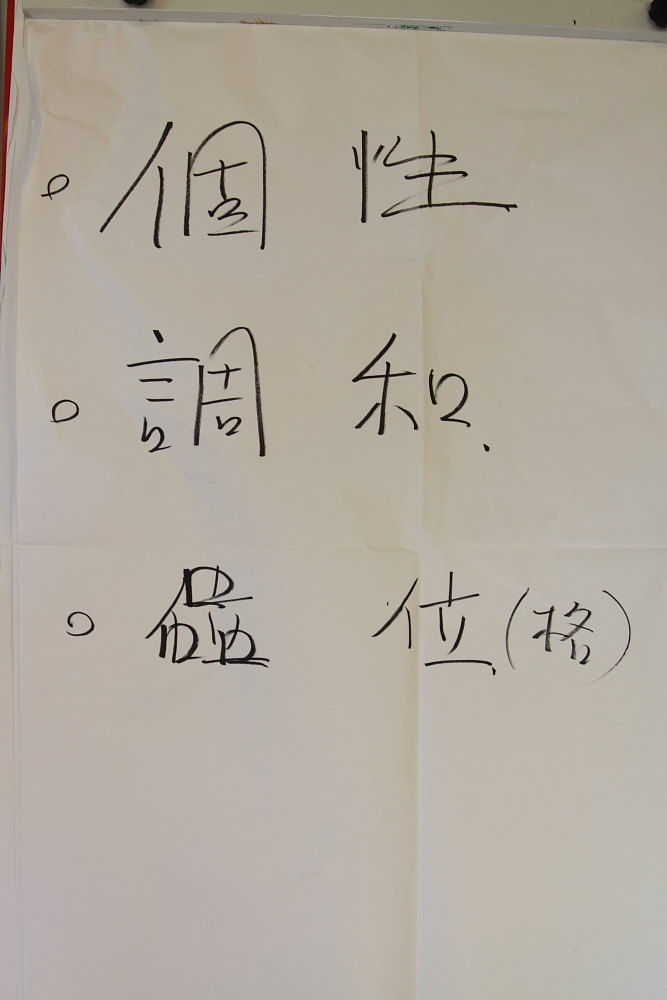 ○ 個性
○ 調和.
○ 品位(格)